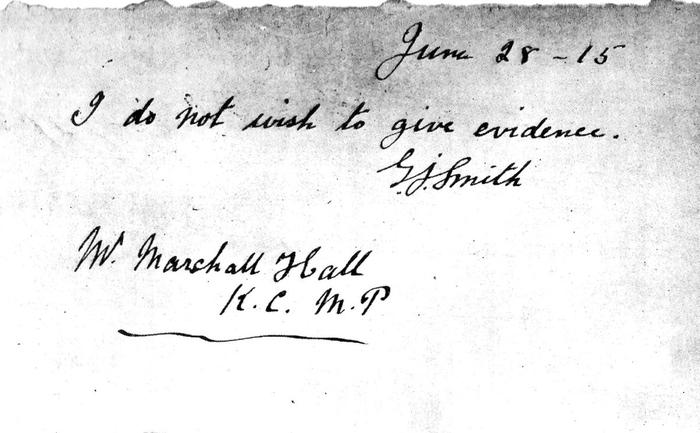 June 28 - 15
I do not wish to give evidence.
G.J. Smith
Mr. Marshall Hall
K. C. M. P